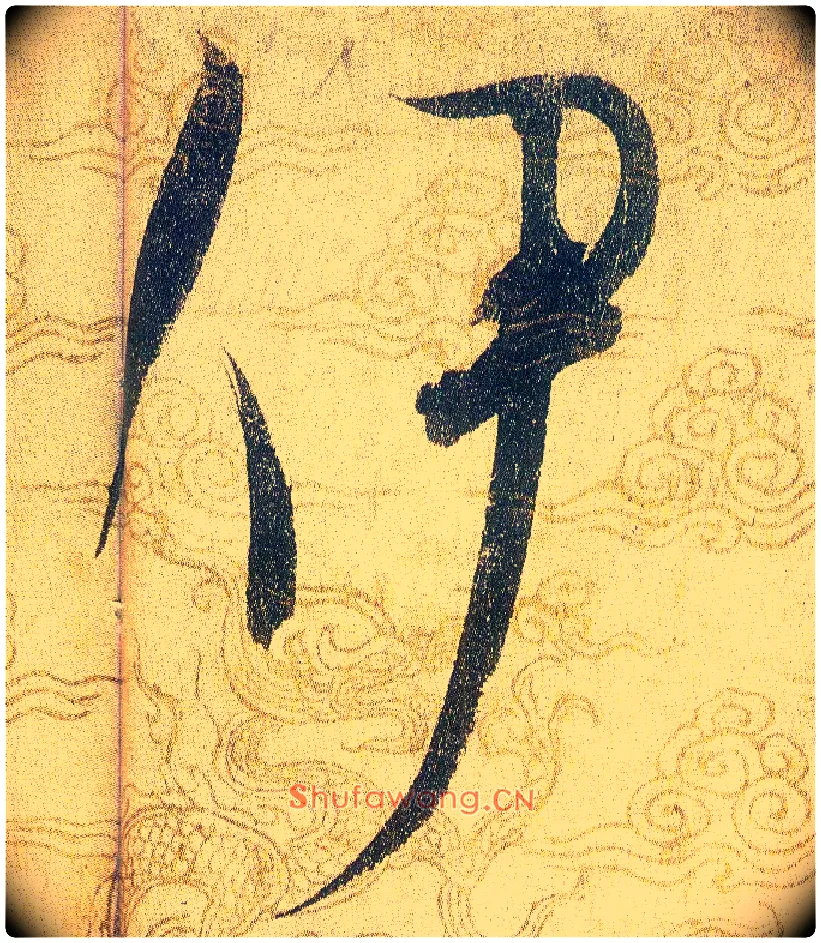 伊
Shufawang.CN